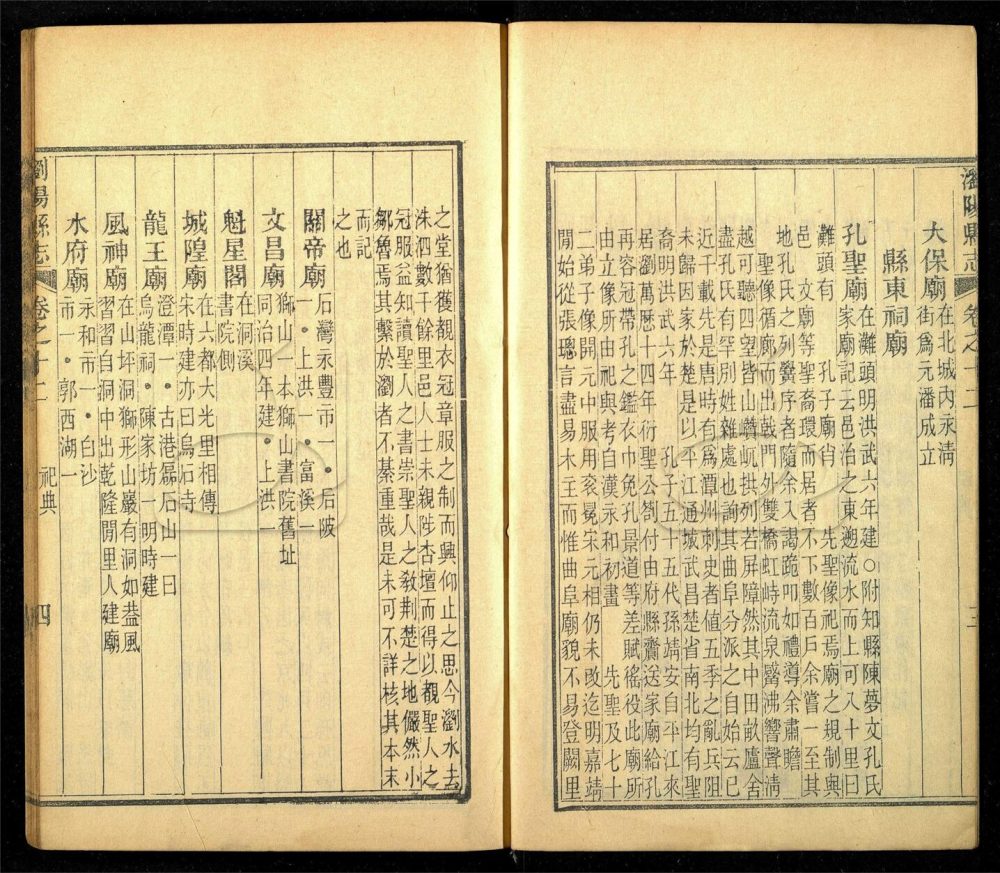 瀏陽縣志 卷之十二 三
大保廟在北城內永淸
街爲元潘成立
縣東祠廟
孔聖廟在灘頭明洪武六年建○附知縣陳夢文孔氏
家廟記云邑治之東遡流水而上可八十里曰
灘頭有 孔子廟肖 先聖像祀焉廟之規制與
邑 文廟等聖裔環而居者不下數百戶余嘗一至其
地孔氏之列黌序者隨余入謁跪叩如禮導余肅瞻
聖像循廊而出戟門外雙橋虹峙流泉觱沸響聲淸
越可聽四望皆山巑岏拱列若屏障然其中田畝廬舍
盡孔氏有罕別姓雜處也詢其曲阜分派之自始云已
近千載先是唐時有爲潭州刺史者值五季之亂兵阻
未歸因家於楚是以平江通城武昌楚省南北均有聖
裔明洪武六年 孔子五十五代孫靖安自平江來
居瀏萬厯十四年衍聖公劄付由府縣齎送家廟給孔
再容冠帶孔之鑑衣巾免孔景道等差賦徭役此廟所
由立像所由祀與考自漢永和初畫 先聖及七十
二弟子像開元中服用衮冕宋元相仍未改迄明嘉靖
閒始從張璁言盡易木主而惟曲阜廟貌不易登闕里
之堂猶獲覩衣冠章服之制而興仰止之思今瀏水去
洙泗數千餘里邑人士未親陟杏壇而得以覩聖人之
冠服益知讀聖人之書崇聖人之敎荆楚之地儼然小
鄒魯焉其繫於瀏者不綦重哉是未可不詳核其本末
而記
之也
關帝廟石灣永豐市一•后陂
一•上洪一•富溪一
文昌廟獅山一本獅山書院舊址
同治四年建•上洪一
魁星閣在洞溪
書院側
城隍廟在六都大光里相傳
宋時建亦曰烏石寺
龍王廟澄潭一•古港磊石山一曰
烏龍祠•陳家坊一明時建
風神廟在山坪洞獅形山巖有洞如盎風
習習自洞中出乾隆閒里人建廟
水府廟永和市一•白沙
市一•郭西湖一
瀏陽縣志 卷之十二 祀典 四